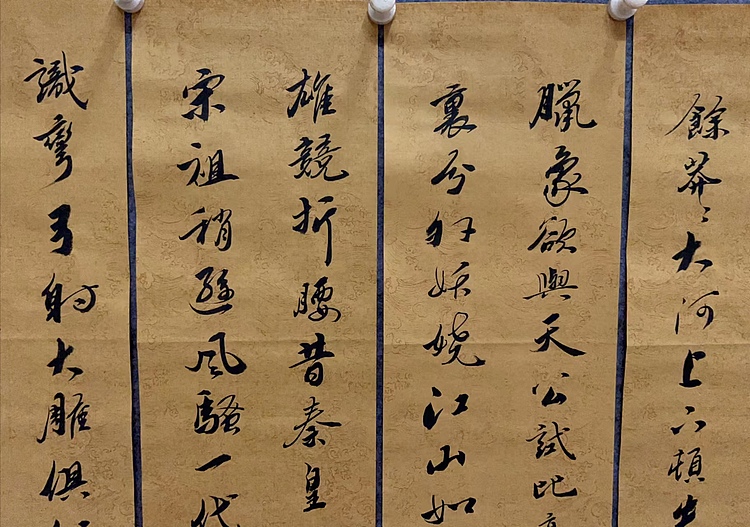 餘莽〻大河上下頓失
臘象欲與天公試比高
裹分外妖嬈江山如
雄競折腰昔秦皇
宋祖稍遜風騷一代
識彎弓射大雕俱